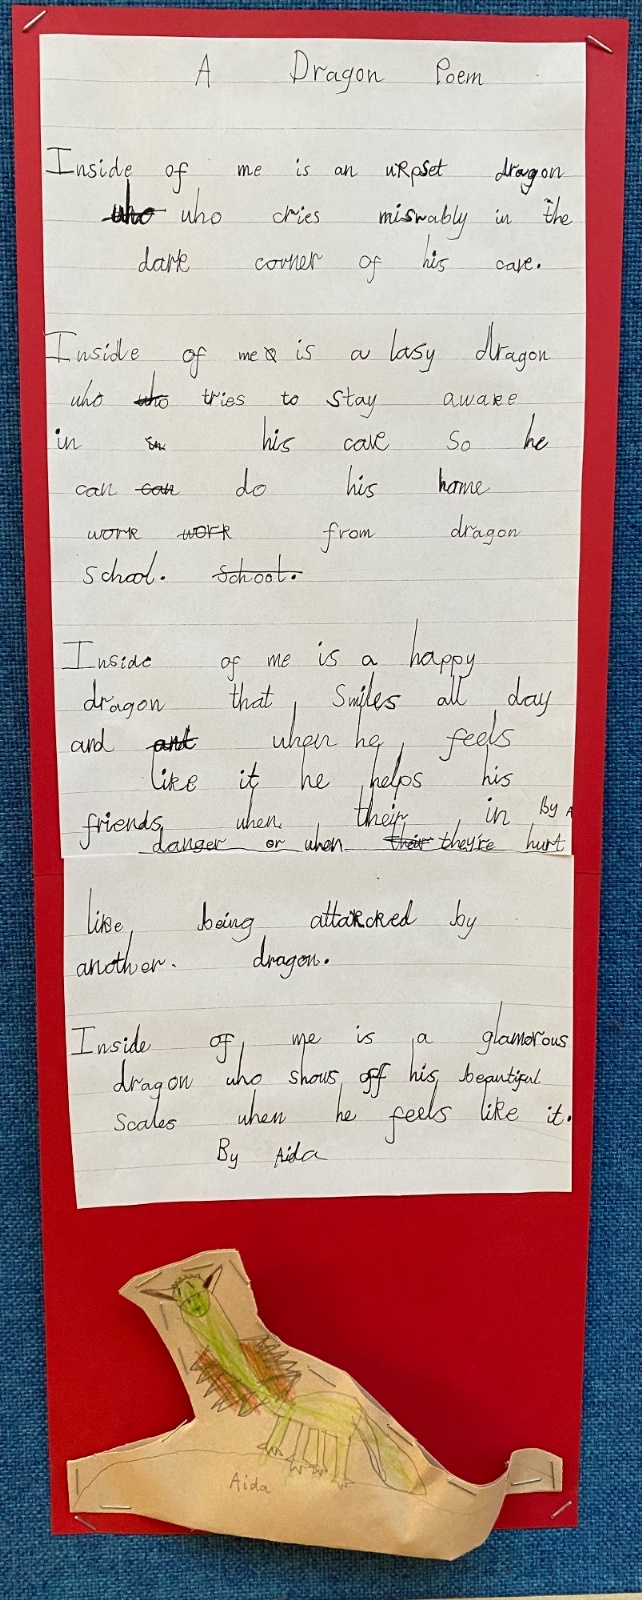 A Dragon Poem
Inside of me is an uRpset dragon
who who cries miserably in the
dark corner of his cave.
Inside of me is a lasy dragon
who who tries to stay awake
in in his cave so he
can can do his home
work work from dragon
school. School.
Inside of me is a happy
dragon that smiles all day
and ant when he feels
like it he helps his
friends when their in By A
danger or when their they're hurt
like being attarcked by
another. dragon.
Inside of me is a glamorous
dragon who shows off his beautiful
scales when he feels like it.
By Aida
Aida